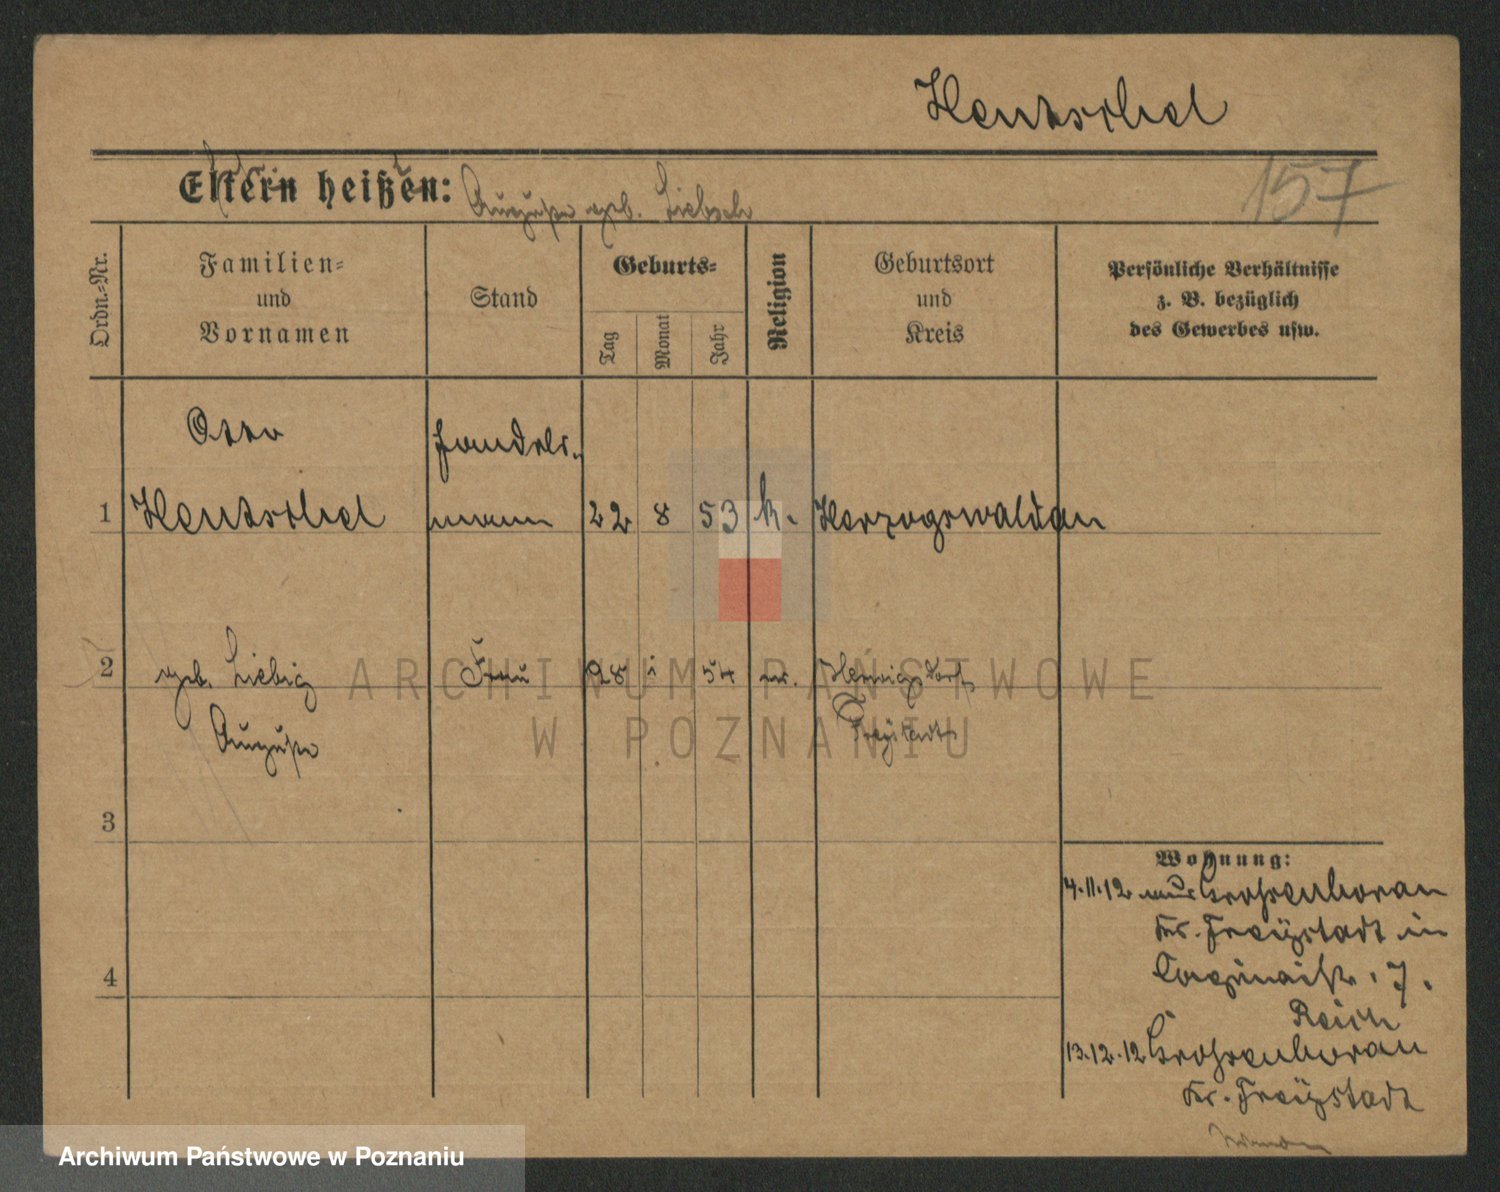 Hentschel
157
Eltern heißen: Auguste geb. Liebsch
Ordn.-Nr.
Familien-
und
Vornamen
Stand
Geburts-
Tag
Monat
Jahr
Religion
Geburtsort
und
Kreis
Persönliche Verhältnisse
z. B. bezüglich
des Gewerbes usw.
Otto
Handels-
1 Hentschel mann 22 8 53 k. Herzogswaldau
2 geb. Liebig Frau 28 54 Herwigsdorf
Auguste Freistadt
3
4
Wohnung:
4.11.12 aus Grossenboran
Kr. Freÿstadt in
7.
Reich
13.12.12 Grossenboran
Kr. Freÿstadt
ARCHIWUM PAŃSTWOWE
W POZNANIU
Archiwum Państwowe w Poznaniu